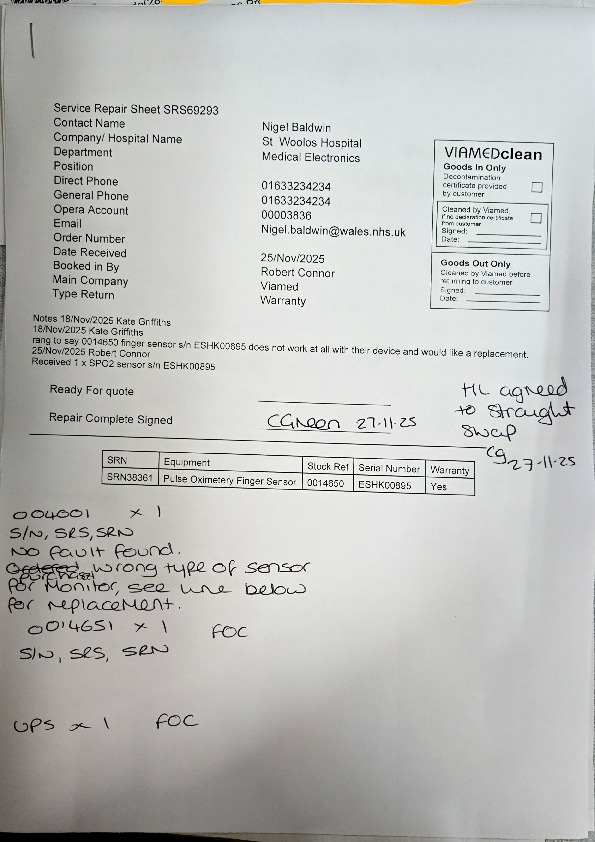 Service Repair Sheet SRS69293
Contact Name Nigel Baldwin
Company/ Hospital Name St Woolos Hospital
Department Medical Electronics
Position
Direct Phone 01633234234
General Phone 01633234234
Opera Account 00003836
Email Nigel.baldwin@wales.nhs.uk
Order Number
Date Received 25/Nov/2025
Booked in By Robert Connor
Main Company Viamed
Type Return Warranty
VIAMEDclean
Goods In Only
Decontamination
certificate provided
by customer
Cleaned by Viamed,
if no declaration certificate
from customer
Signed:
Date:
Goods Out Only
Cleaned by Viamed before
returning to customer
Signed:
Date:
Notes 18/Nov/2025 Kate Griffiths
18/Nov/2025 Kate Griffiths
rang to say 0014650 finger sensor s/n ESHK00895 does not work at all with their device and would like a replacement.
25/Nov/2025 Robert Connor
Received 1 x SPO2 sensor s/n ESHK00895
Ready For quote
Repair Complete Signed CGreen 27-11-25
HL agreed
to straight
swap
CG 27-11-25
SRN Equipment Stock Ref Serial Number Warranty
SRN38361 Pulse Oximetery Finger Sensor 0014650 ESHK00895 Yes
004001 x 1
S/N, SRS, SRN
No fault found.
Ordered wrong type of sensor
purchased
for monitor, see line below
for replacement.
0014651 x 1 FOC
S/N, SRS, SRN
UPS x 1 FOC